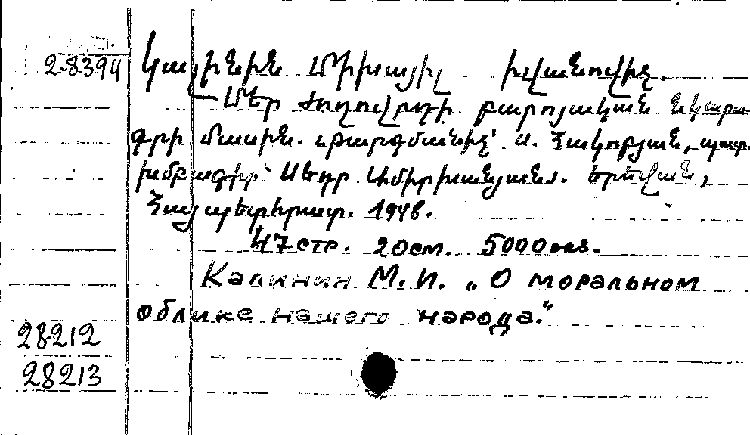 28394 Կալինին Միխայիլ Իվանովիչ.
Մեր ժողովրդի բարոյական նկարա-
գրի մասին. Թարգմանիչ՝ Ա. Հակոբյան, պատ.
խմբագիր՝ Սեդր Ամիրխանյան. Երևան,
Հայպետհրատ. 1948.
47 стр. 20см. 5000 экз.
Калинин М. И. „О моральном
облике нашего народа.“
28212
28213